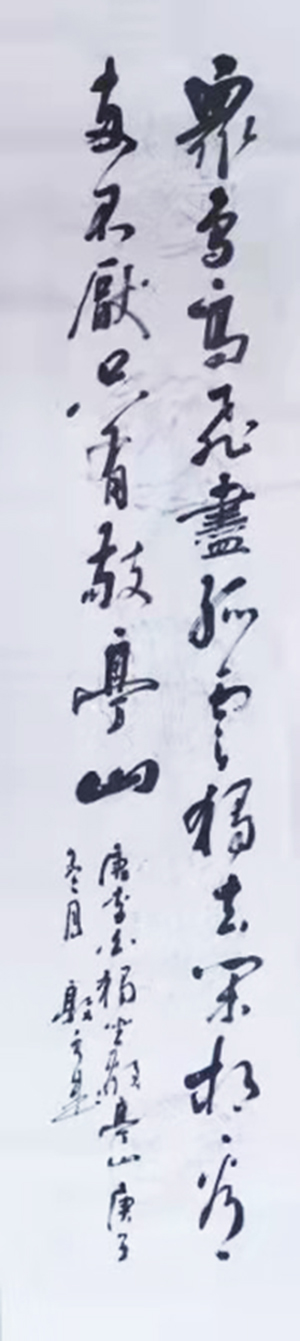 眾鳥高飛盡孤雲獨去閑相看
兩不厭只有敬亭山
唐李白獨坐敬亭山庚子
冬月 殷